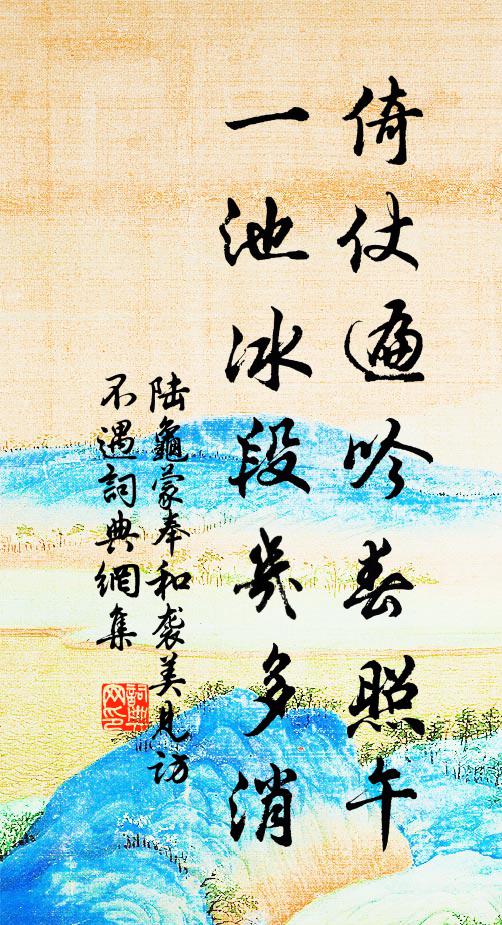 倚仗遍吟春照午
一池冰段幾多消
陸龜蒙奉和袭美見訪
不遇詞典網集
詞典网印